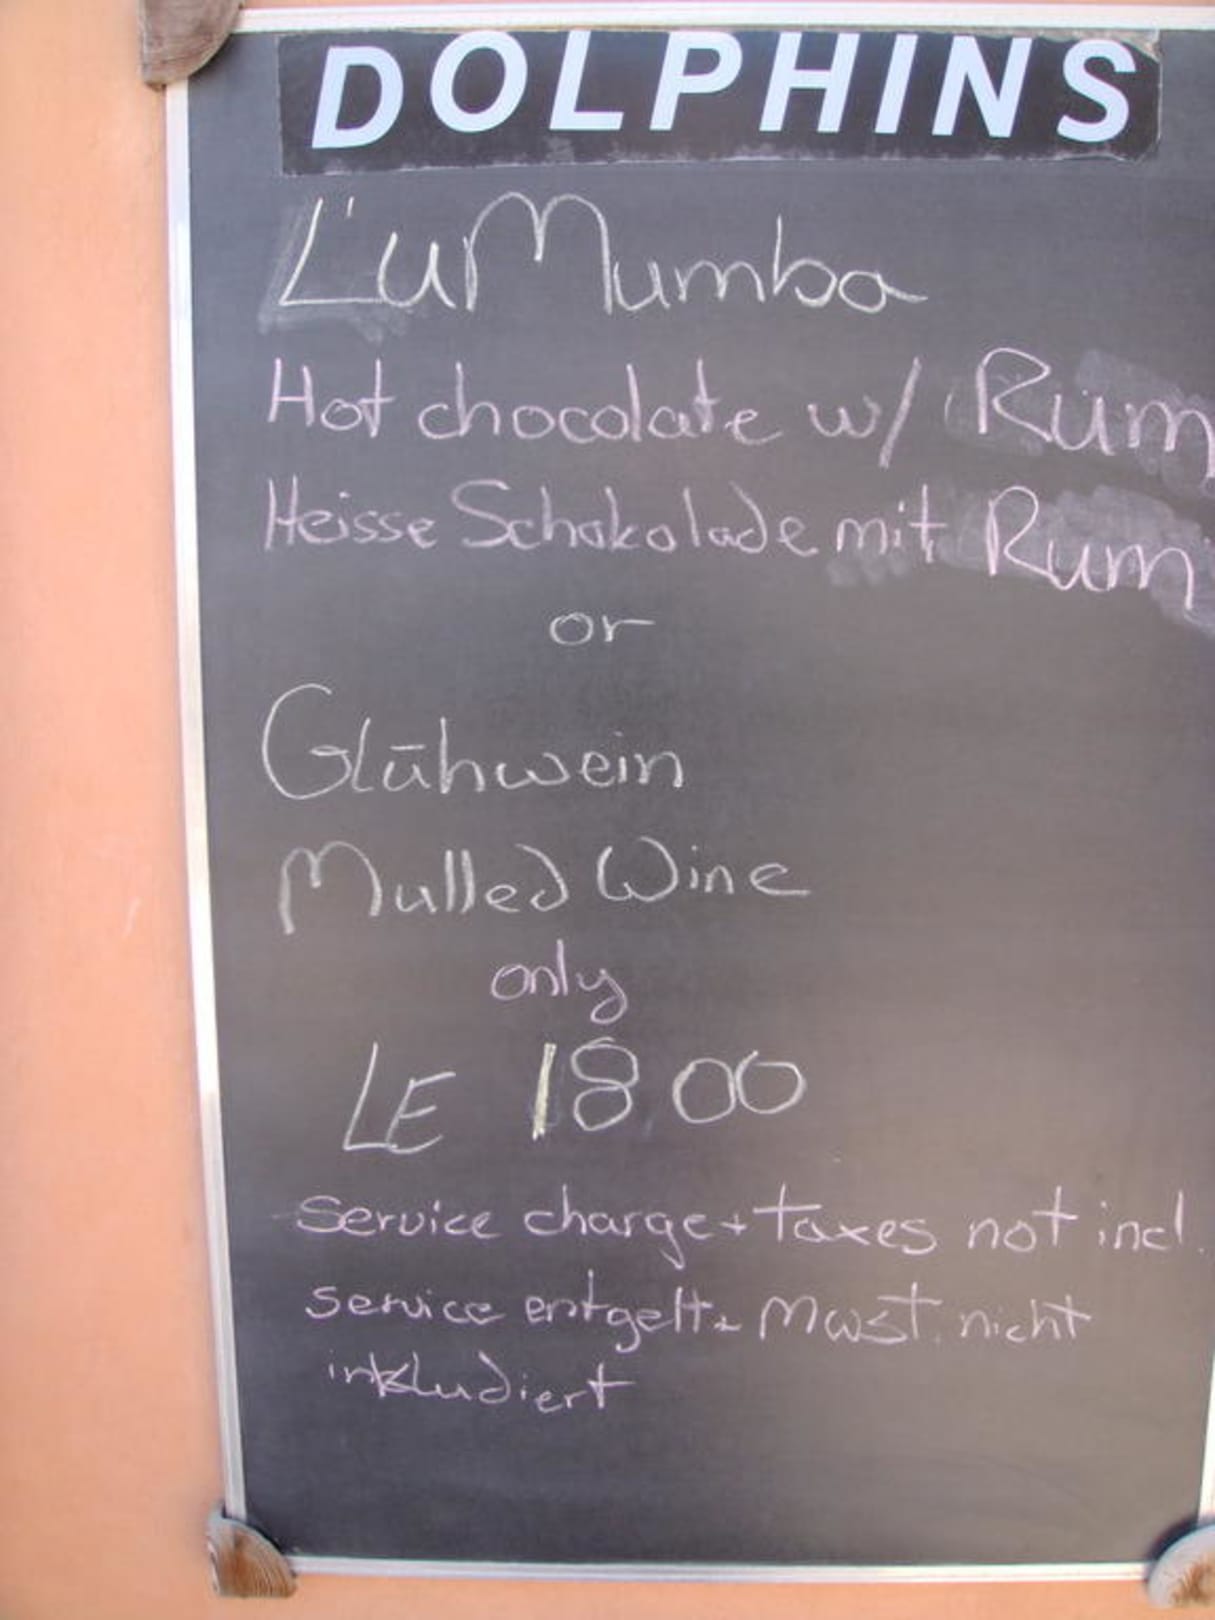 DOLPHINS
L'uMumba
Hot chocolate w/ Rum
Heisse Schokolade mit Rum
or
Glühwein
Mulled Wine
only
LE 18 00
Service charge + taxes not incl.
service entgelt + Mwst. nicht
inkludiert